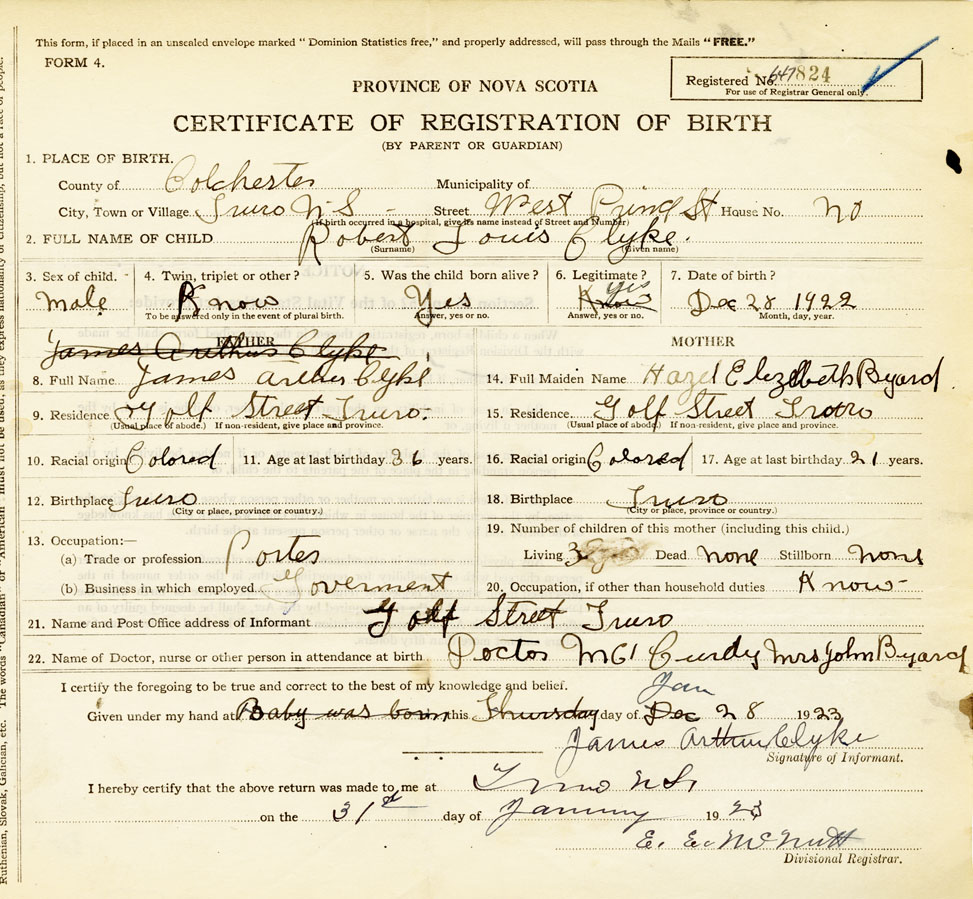 This form, if placed in an unsealed envelope marked "Dominion Statistics free," and properly addressed, will pass through the Mails "FREE."
FORM 4.
Registered No. 647824
For use of Registrar General only.
PROVINCE OF NOVA SCOTIA
CERTIFICATE OF REGISTRATION OF BIRTH
(BY PARENT OR GUARDIAN)
1. PLACE OF BIRTH.
County of Colchester Municipality of
City, Town or Village Truro N S - Street West Prince St House No. no
(If birth occurred in a hospital, give its name instead of Street and Number)
2. FULL NAME OF CHILD Robert Louis Clyke.
(Surname) (Given name)
3. Sex of child. 4. Twin, triplet or other? 5. Was the child born alive? 6. Legitimate? 7. Date of birth?
Male Know Yes Know yes Dec 28 1922
To be answered only in the event of plural birth. Answer, yes or no. Answer, yes or no. Month, day, year.
FATHER MOTHER
James Arthur Clyke
8. Full Name James Arther Clyke 14. Full Maiden Name Hazel Elezebeth Byard
9. Residence Golf Street Truro. 15. Residence. Golf Street Truro
(Usual place of abode.) If non-resident, give place and province. (Usual place of abode.) If non-resident, give place and province.
10. Racial origin Colored 11. Age at last birthday 36 years. 16. Racial origin Colored 17. Age at last birthday 21 years.
12. Birthplace Truro 18. Birthplace Truro
(City or place, province or country.) (City or place, province or country.)
19. Number of children of this mother (including this child.)
13. Occupation:—
(a) Trade or profession Porter Living 3 Dead none Stillborn none
(b) Business in which employed Goverment 20. Occupation, if other than household duties Know-
21. Name and Post Office address of Informant Golf Street Truro
22. Name of Doctor, nurse or other person in attendance at birth Doctor Mc Curdy Mrs John Byard
I certify the foregoing to be true and correct to the best of my knowledge and belief.
Jan
Given under my hand at Baby was born this Thursday day of Dec 28 1923
James Arthur Clyke
Signature of Informant.
I hereby certify that the above return was made to me at Truro N.S.
on the 31st day of January 1923
E. E. McNutt
Divisional Registrar.
Ruthenian, Slovak, Galician, etc. The words "Canadian" or "American" must not be used, as they express nationality or citizenship, but not a race of people.